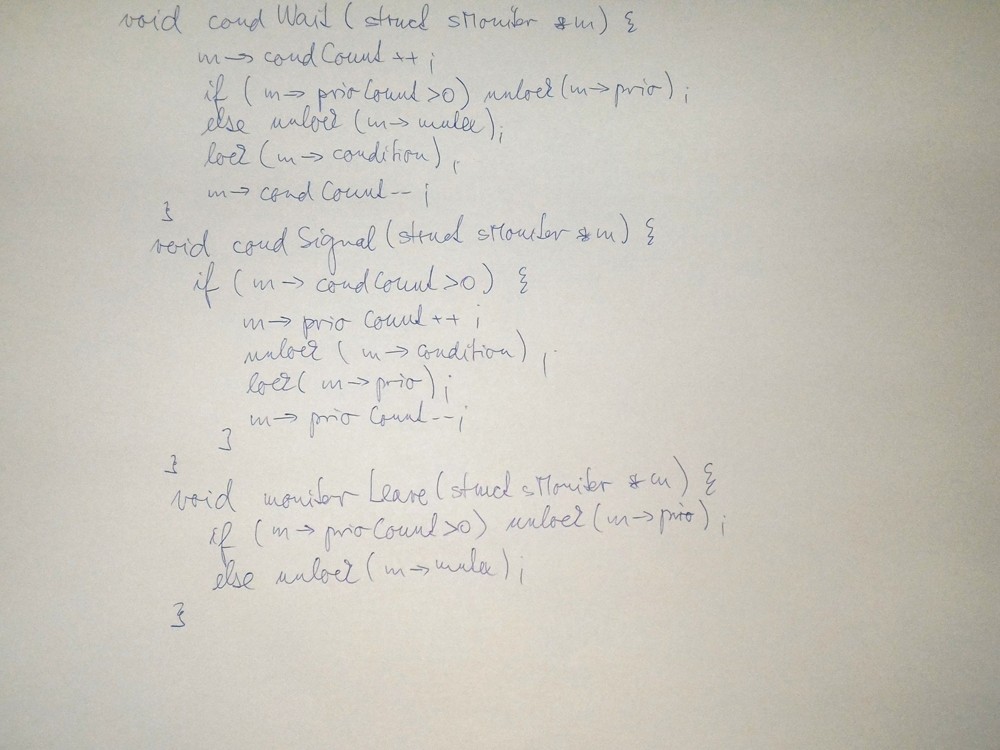 void condWait(struct sMonitor *m) {
m→condCount++;
if (m→prioCount>0) unlock(m→prio);
else unlock(m→mutex);
lock(m→condition);
m→condCount--;
}
void condSignal(struct sMonitor *m) {
if (m→condCount>0) {
m→prioCount++;
unlock(m→condition);
lock(m→prio);
m→prioCount--;
}
}
void monitorLeave(struct sMonitor *m) {
if (m→prioCount>0) unlock(m→prio);
else unlock(m→mutex);
}